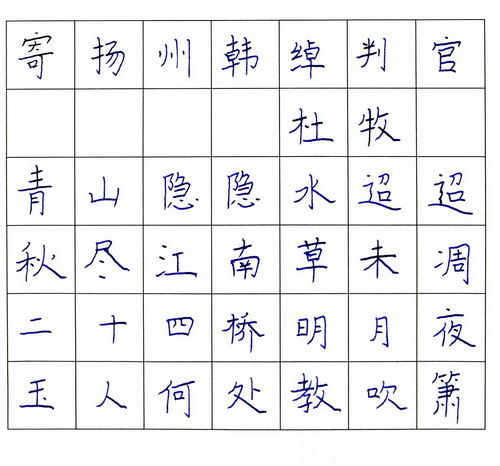 寄扬州韩绰判官
杜牧
青山隐隐水迢迢
秋尽江南草未凋
二十四桥明月夜
玉人何处教吹箫